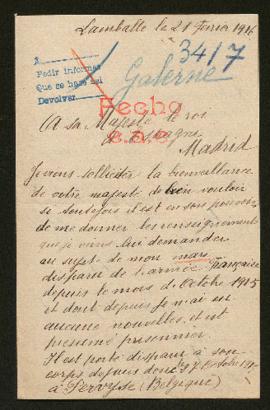 Lamballe le 21 Février 1916
3417
Pedir informes
Que se hace así
Devolver
Galerne
Hecho
A sa Majesté le roi
d'Espagne
Madrid
Je viens solliciter la bienveillance
de votre majesté de bien vouloir
si toutefois il est en son pouvoir
de me donner les renseignements
que je viens lui demander
au sujet de mon mari
disparu de l'armée française
depuis le mois de Octobre 1915
et dont depuis je n'ai eu
aucune nouvelles, il est
présumé prisonnier.
Il est porté disparu à son
corps depuis
à Pervyse (Belgique)